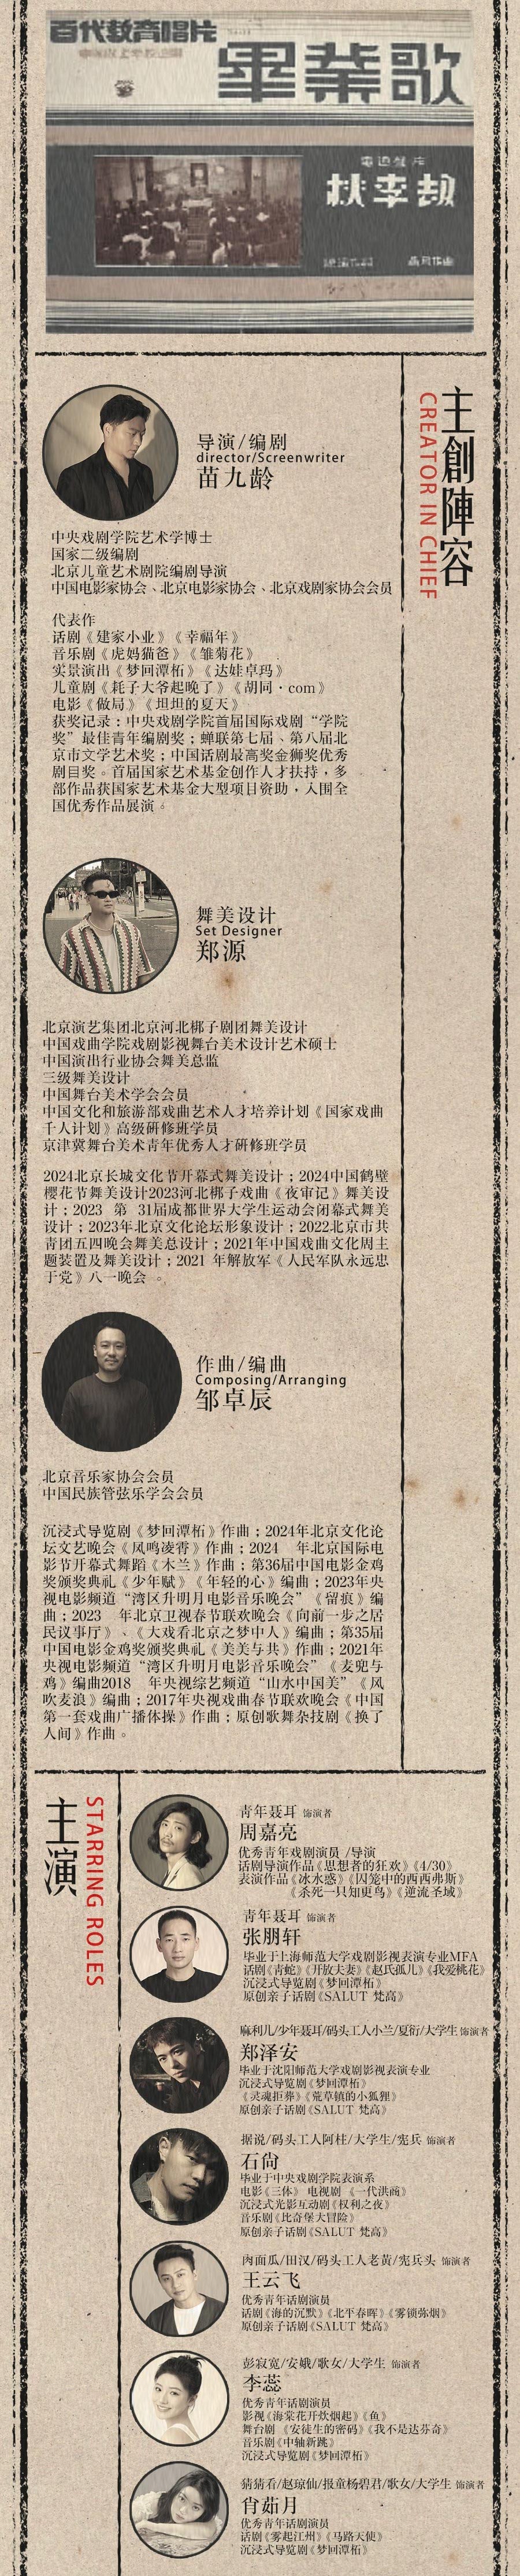 百代教育唱片
畢業歌
電通唱片
桃李劫
主創陣容
CREATOR IN CHIEF
导演/编剧
director/Screenwriter
苗九龄
中央戏剧学院艺术学博士
国家二级编剧
北京儿童艺术剧院编剧导演
中国电影家协会、北京电影家协会、北京戏剧家协会会员
代表作
话剧《建家小业》《幸福年》
音乐剧《虎妈猫爸》《雏菊花》
实景演出《梦回潭柘》《达娃卓玛》
儿童剧《耗子大爷起晚了》《胡同·com》
电影《做局》《坦坦的夏天》
获奖记录：中央戏剧学院首届国际戏剧“学院
奖”最佳青年编剧奖；蝉联第七届、第八届北
京市文学艺术奖；中国话剧最高奖金狮奖优秀
剧目奖。首届国家艺术基金创作人才扶持，多
部作品获国家艺术基金大型项目资助，入围全
国优秀作品展演。
舞美设计
Set Designer
郑源
北京演艺集团北京河北梆子剧团舞美设计
中国戏曲学院戏剧影视舞台美术设计艺术硕士
中国演出行业协会舞美总监
三级舞美设计
中国舞台美术学会会员
中国文化和旅游部戏曲艺术人才培养计划《国家戏曲
千人计划》高级研修班学员
京津冀舞台美术青年优秀人才研修班学员
2024北京长城文化节开幕式舞美设计；2024中国鹤壁
樱花节舞美设计2023河北梆子戏曲《夜审记》舞美设
计；2023 第 31届成都世界大学生运动会闭幕式舞美
设计；2023年北京文化论坛形象设计；2022北京市共
青团五四晚会舞美总设计；2021年中国戏曲文化周主
题装置及舞美设计；2021 年解放军《人民军队永远忠
于党》八一晚会 。
作曲/编曲
Composing/Arranging
邹卓辰
北京音乐家协会会员
中国民族管弦乐学会会员
沉浸式导览剧《梦回潭柘》作曲；2024年北京文化论
坛文艺晚会《凤鸣凌霄》作曲；2024 年北京国际电
影节开幕式舞蹈《木兰》作曲；第36届中国电影金鸡
奖颁奖典礼《少年赋》《年轻的心》编曲；2023年央
视电影频道“湾区升明月电影音乐晚会”《留痕》编
曲；2023 年北京卫视春节联欢晚会《向前一步之居
民议事厅》、《大戏看北京之梦中人》编曲；第35届
中国电影金鸡奖颁奖典礼《美美与共》作曲；2021年
央视电影频道“湾区升明月电影音乐晚会”《麦兜与
鸡》编曲2018 年央视综艺频道“山水中国美”《风
吹麦浪》编曲；2017年央视戏曲春节联欢晚会《中国
第一套戏曲广播体操》作曲；原创歌舞杂技剧《换了
人间》作曲。
主演
STARRING ROLES
青年聂耳 饰演者
周嘉亮
优秀青年戏剧演员 /导演
话剧导演作品《思想者的狂欢》《4/30》
表演作品《冰水惑》《囚笼中的西西弗斯》
《杀死一只知更鸟》《逆流圣域》
青年聂耳 饰演者
张朋轩
毕业于上海师范大学戏剧影视表演专业MFA
话剧《青蛇》《开放夫妻》《赵氏孤儿》《我爱桃花》
沉浸式导览剧《梦回潭柘》
原创亲子话剧《SALUT 梵高》
麻利儿/少年聂耳/码头工人小兰/夏衍/大学生 饰演者
郑泽安
毕业于沈阳师范大学戏剧影视表演专业
沉浸式导览剧《梦回潭柘》
《灵魂拒葬》《荒草镇的小狐狸》
原创亲子话剧《SALUT 梵高》
据说/码头工人阿柱/大学生/宪兵 饰演者
石尚
毕业于中央戏剧学院表演系
电影《三体》 电视剧 《一代洪商》
沉浸式光影互动剧《权利之夜》
音乐剧《比奇堡大冒险》
原创亲子话剧《SALUT 梵高》
肉面瓜/田汉/码头工人老黄/宪兵头 饰演者
王云飞
优秀青年话剧演员
话剧《海的沉默》《北平春晖》《雾锁弥烟》
原创亲子话剧《SALUT 梵高》
彭寂宽/安娥/歌女/大学生 饰演者
李蕊
优秀青年话剧演员
影视《海棠花开炊烟起》《鱼》
舞台剧 《安徒生的密码》《我不是达芬奇》
音乐剧《中轴新跳》
沉浸式导览剧《梦回潭柘》
猜猜看/赵琼仙/报童杨碧君/歌女/大学生 饰演者
肖茹月
优秀青年话剧演员
话剧《雾起江州》《马路天使》
沉浸式导览剧《梦回潭柘》